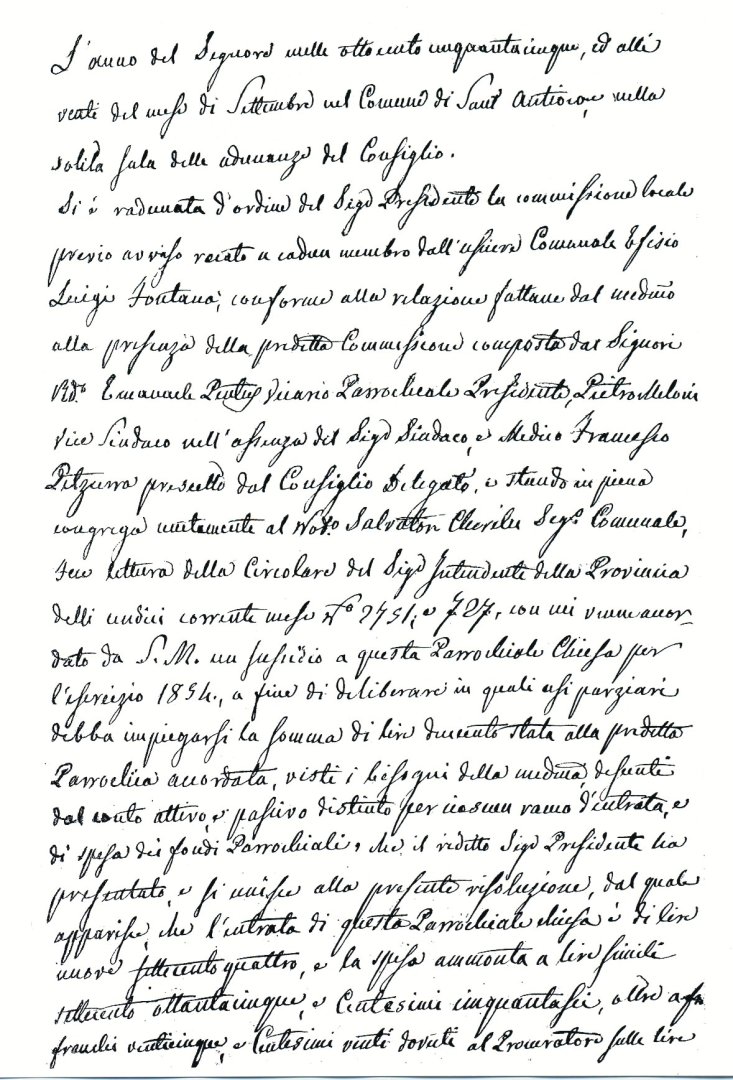 L'anno del Signore mille ottocento cinquantacinque, ed alli
venti del mese di Settembre nel Comune di Sant'Antioco, nella
solita sala delle adunanze del Consiglio.
Si è radunata d'ordine del Sigr Presidente la commissione locale
previo avviso recato a cadun membro dall'usciere Comunale Efisio
Luigi Fontana, conforme alla relazione fattane dal medmo
alla presenza della predetta Commissione composta dai Signori
Rdo Emanuele Vicario Parrochiale Presidente, Pietro Meloni
Vice Sindaco nell'assenza del Sigr Sindaco, e Medico Francesco
Petzurra prescelto dal Consiglio Delegato, e stando in piena
congrega unitamente al Nodo Salvator Segr Comunale,
fece lettura della Circolare del Sigr Intendente della Provincia
delli undici corrente mese No 2751, e 727, con cui venne accor-
dato da S. M. un sussidio a questa Parrochiale Chiesa per
l'esercizio 1854., a fine di deliberare in quali usi parziari
debba impiegarsi la somma di lire duecento stata alla predetta
Parrochia accordata, visti i bisogni della medma, desunti
dal conto attivo, e passivo distinto per ciascun ramo d'entrata, e
di spesa dei fondi Parrochiali, che il Sigr Presidente ha
presentato, e si unisce alla presente risoluzione, dal quale
apparisce, che l'entrata di questa Parrochiale chiesa è di lire
nuove settecento quattro, e la spesa ammonta a lire simili
settecento ottantacinque, e Centesimi cinquantasei, oltre a
franchi venticinque, e Centesimi venti dovuti al Procuratore sulle lire